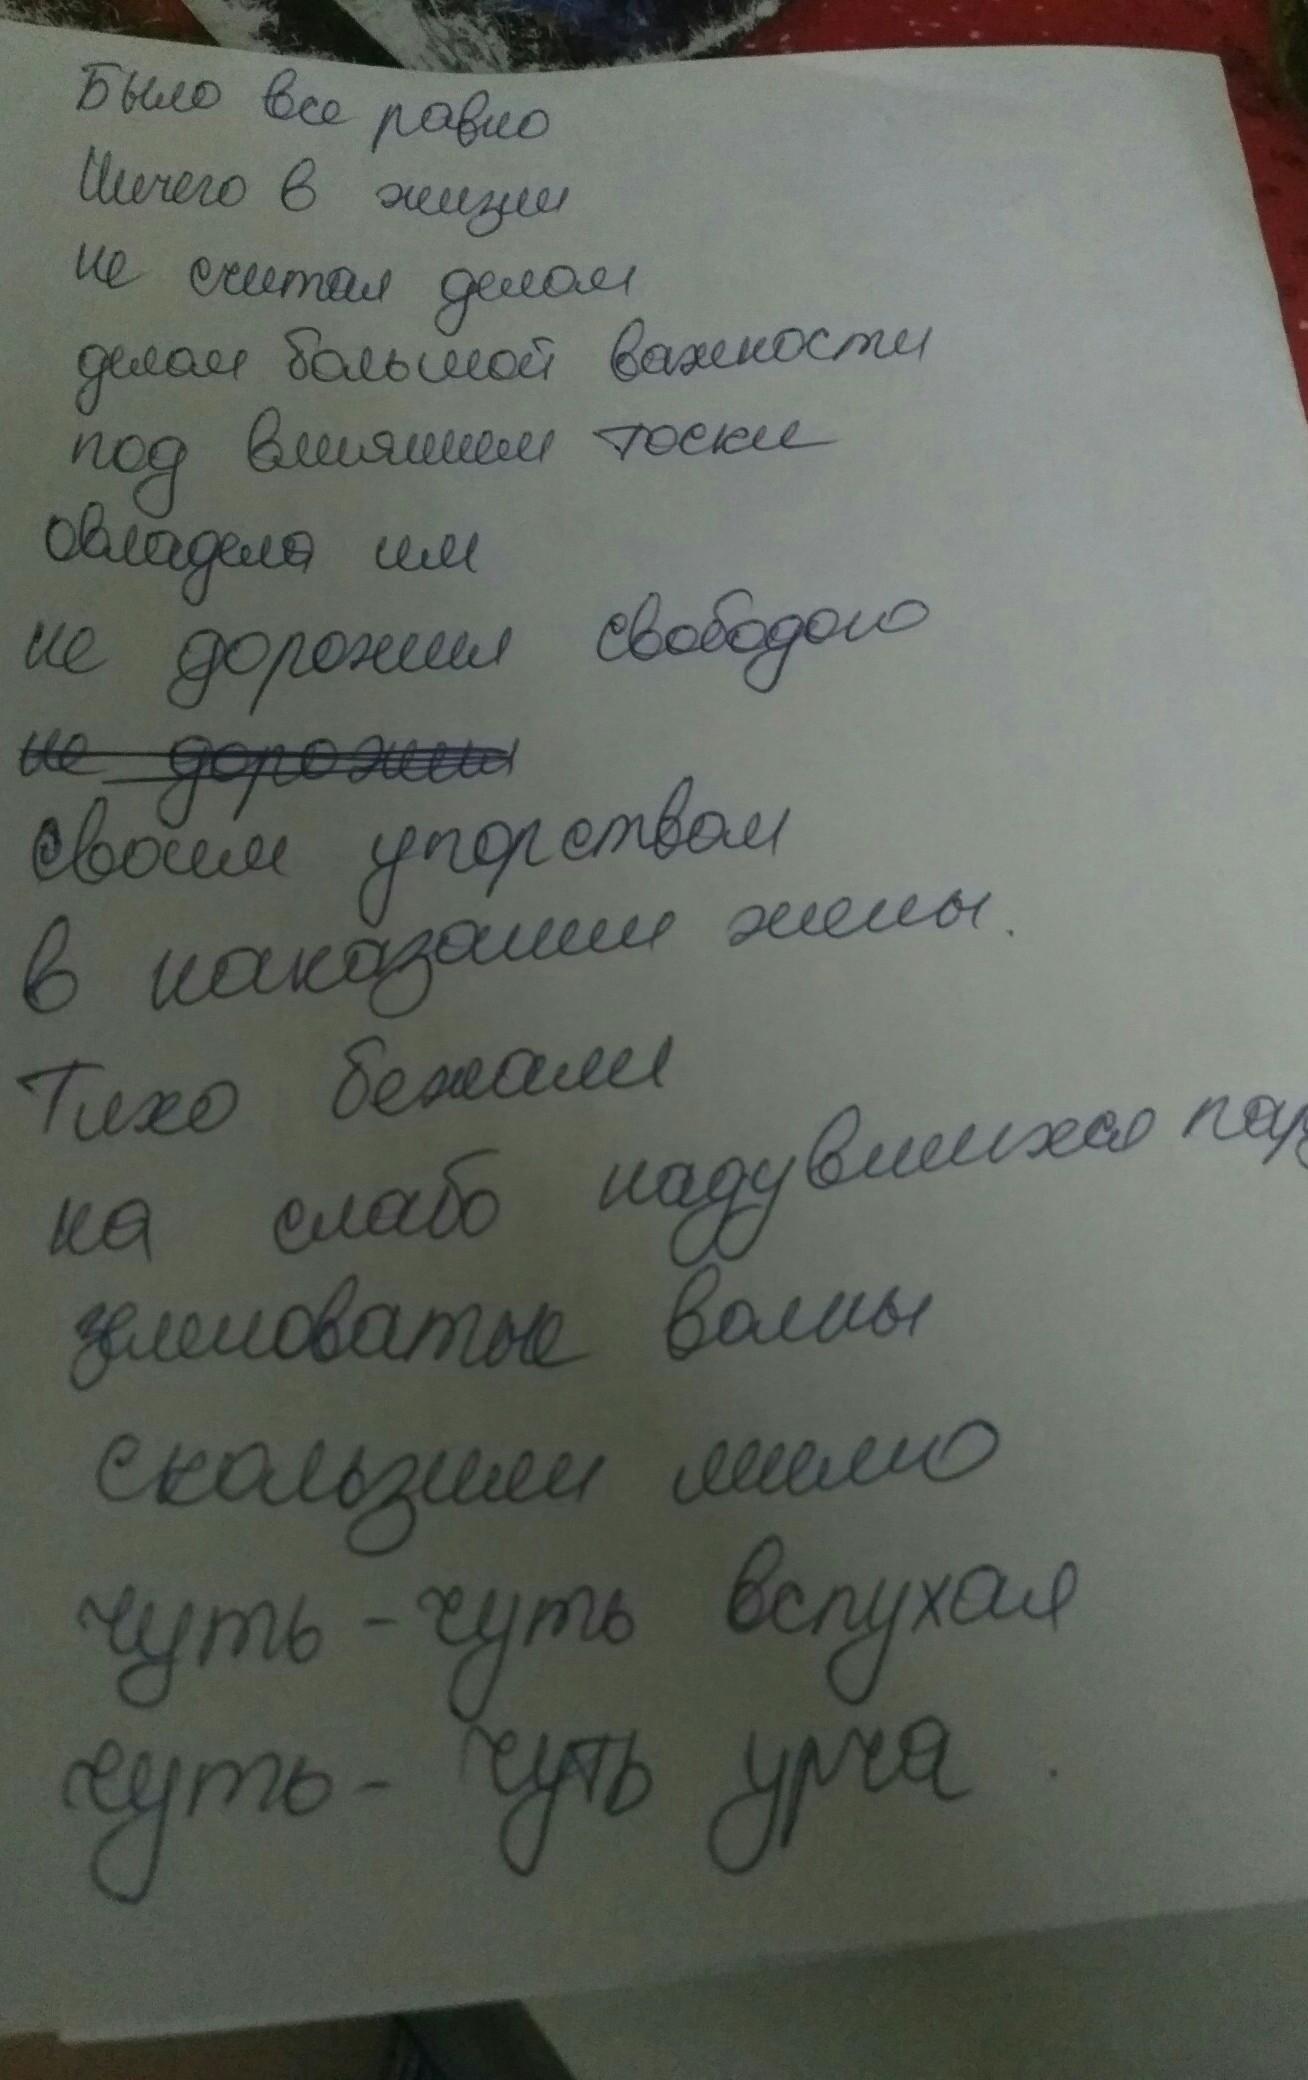 Было все равно
Ничего в жизни
не считал делом
делом большой важности
под влиянием тоски
овладела им
не дорожил свободою
не дорожил
своим упорством
в наказании жены.
Тихо бежали
на слабо надувшихся пар
зеленоватые волны
скользили мимо
чуть-чуть вспухая
чуть-чуть урча.